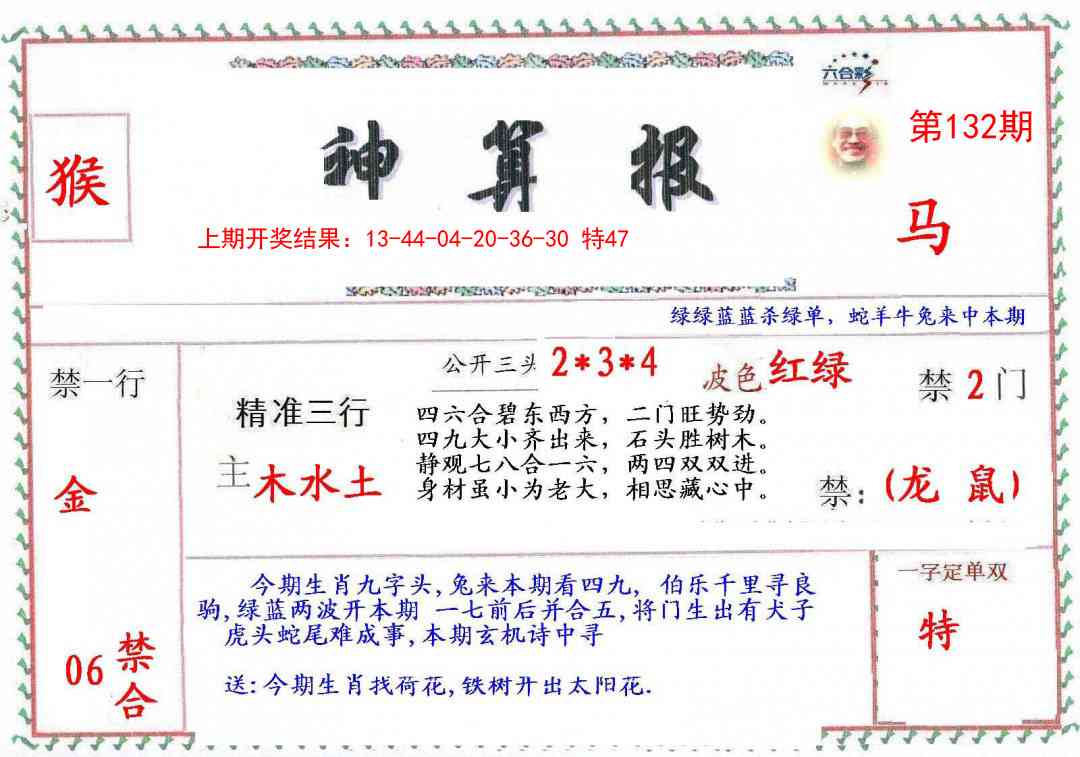 六合彩
第132期
猴
神算报
马
上期开奖结果：13-44-04-20-36-30 特47
绿绿蓝蓝杀绿单，蛇羊牛兔来中本期
禁一行
公开三头 2*3*4
波色 红绿
禁 2 门
精准三行
四六合碧东西方，二门旺势劲。
四九大小齐出来，石头胜树木。
静观七八合一六，两四双双进。
身材虽小为老大，相思藏心中。
主 木水土
金
禁：(龙 鼠)
今期生肖九字头,兔来本期看四九, 伯乐千里寻良
驹,绿蓝两波开本期 一七前后并合五,将门生出有犬子
虎头蛇尾难成事,本期玄机诗中寻
送:今期生肖找荷花,铁树开出太阳花.
一字定单双
特
06 禁合